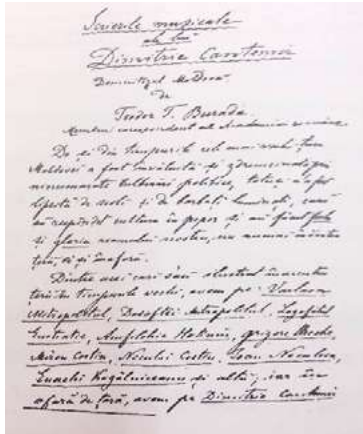 Scrierile muzicale
ale lui
Dimitrie Cantemir
Domnitorul Moldovei
de
Teodor T. Burada
Membru corespondent al Academiei române
De și din timpurile cele mai vechi țara
Moldovei a fost învăluită și zdruncinată prin
nenumerate turburări politice, totuși n'a fost
lipsită de școli și de barbați luminați, cari
au respândit cultura în popor și au făcut fala
și gloria neamului nostru, nu numai înăintru
țerei, ci și în afară.
Dintre acei cari s'au ilustrat în
timpurile vechi, avem pe: Varlaam
Mitropolitul, Dosoftei Mitropolitul, Logofătul
Eustratie, Amfilohie Hotiniu, Grigore Ureche,
Miron Costin, Nicolai Costin, Ioan Neculcea,
Enachi Kogălniceanu și alții; iar în
afară de țară, avem pe Dimitrie Cantemir